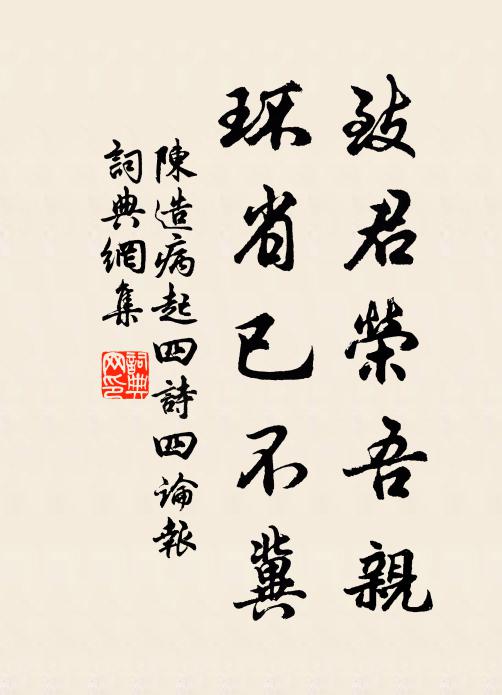 致君榮吾親
环省已不冀
陳造病起四詩四論報
詞典網集
詞典網印